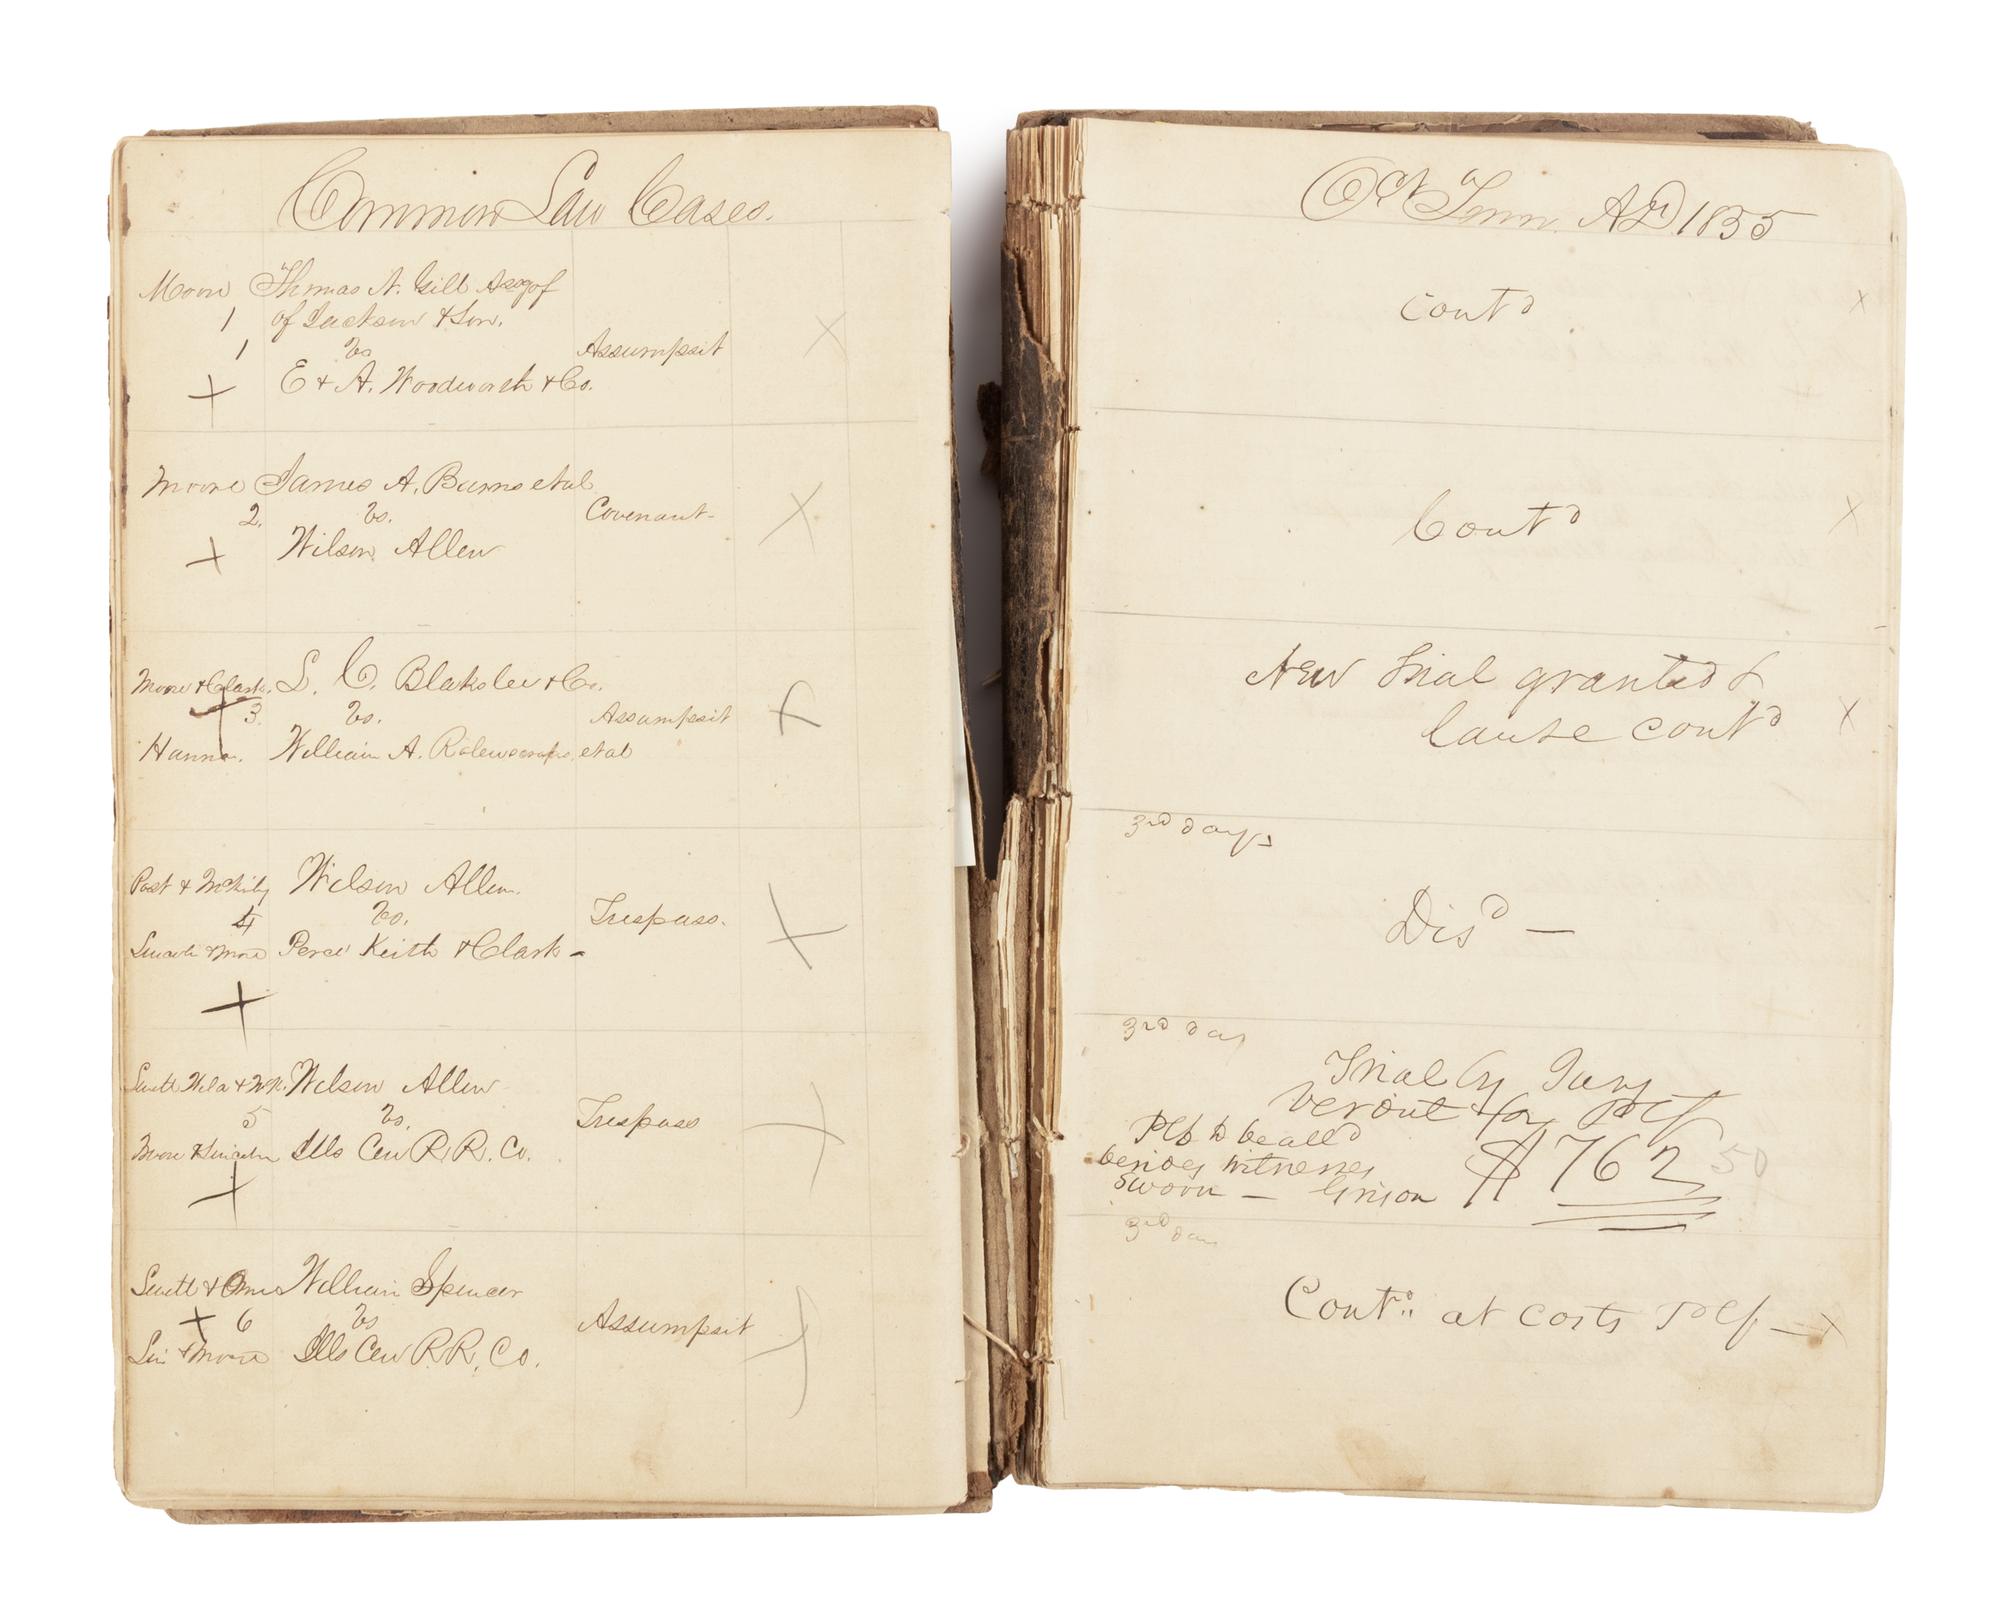 Common Law Cases.
Moore Thomas N. Gill Assg of
1 of Jackson & Son.
1 Vs Assumpsit
E & A. Woodworth & Co.
Moore James A. Burns et al
2. Vs. Covenant
Wilson Allen
Moore & Clark. L. C. Blakslee & Co.
3 Vs. Assumpsit
Hanna. William A. et al
Post & Wilson Allen.
4 Vs. Trespass.
Lincoln & Moore Perce Keith & Clark -
Swett & Wilson Allen
5 Vs. Trespass
Moore & Lincoln Ills Cen R. R. Co.
Swett & Orme William Spencer
6 Vs Assumpsit
Lin & Moore Ills Cen R R. Co.
Oct Term AD 1855
Contd
Contd
New Trial granted &
Cause contd
3rd days
Disd —
3rd day
Trial by Jury
Verdict for Plf
Plf to be alld
besides witnesses $762 50
sworn — Grison
3rd day
Contd at costs Plf —